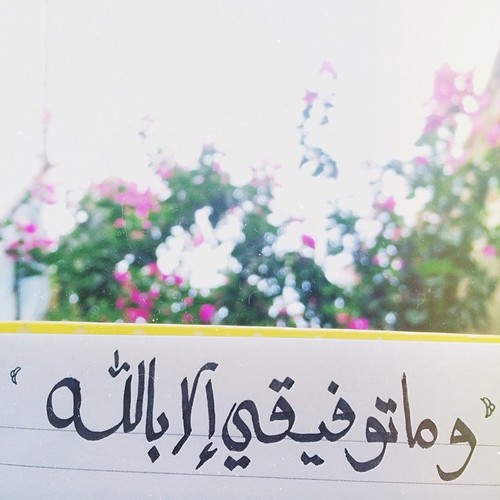 "وما توفيقي إلا بالله"